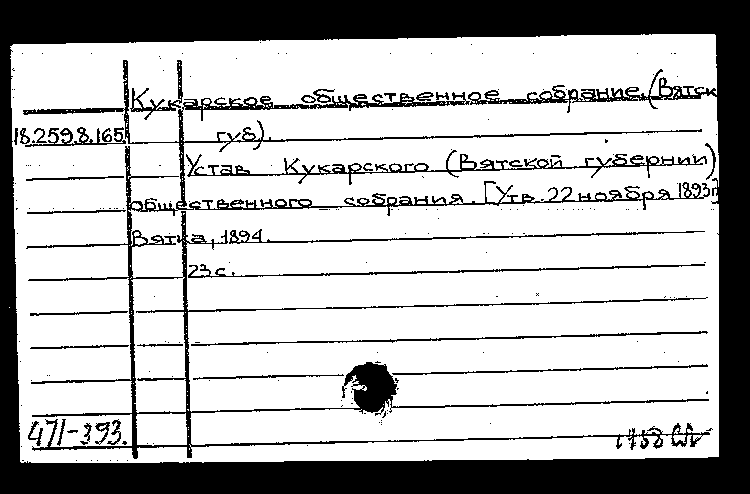 Кукарское общественное собрание. (Вятск
18.259.8.165. губ).
Устав Кукарского (Вятской губернии)
общественного собрания. [Утв. 22 ноября 1893г]
Вятка, 1894.
23 с.
471-393.